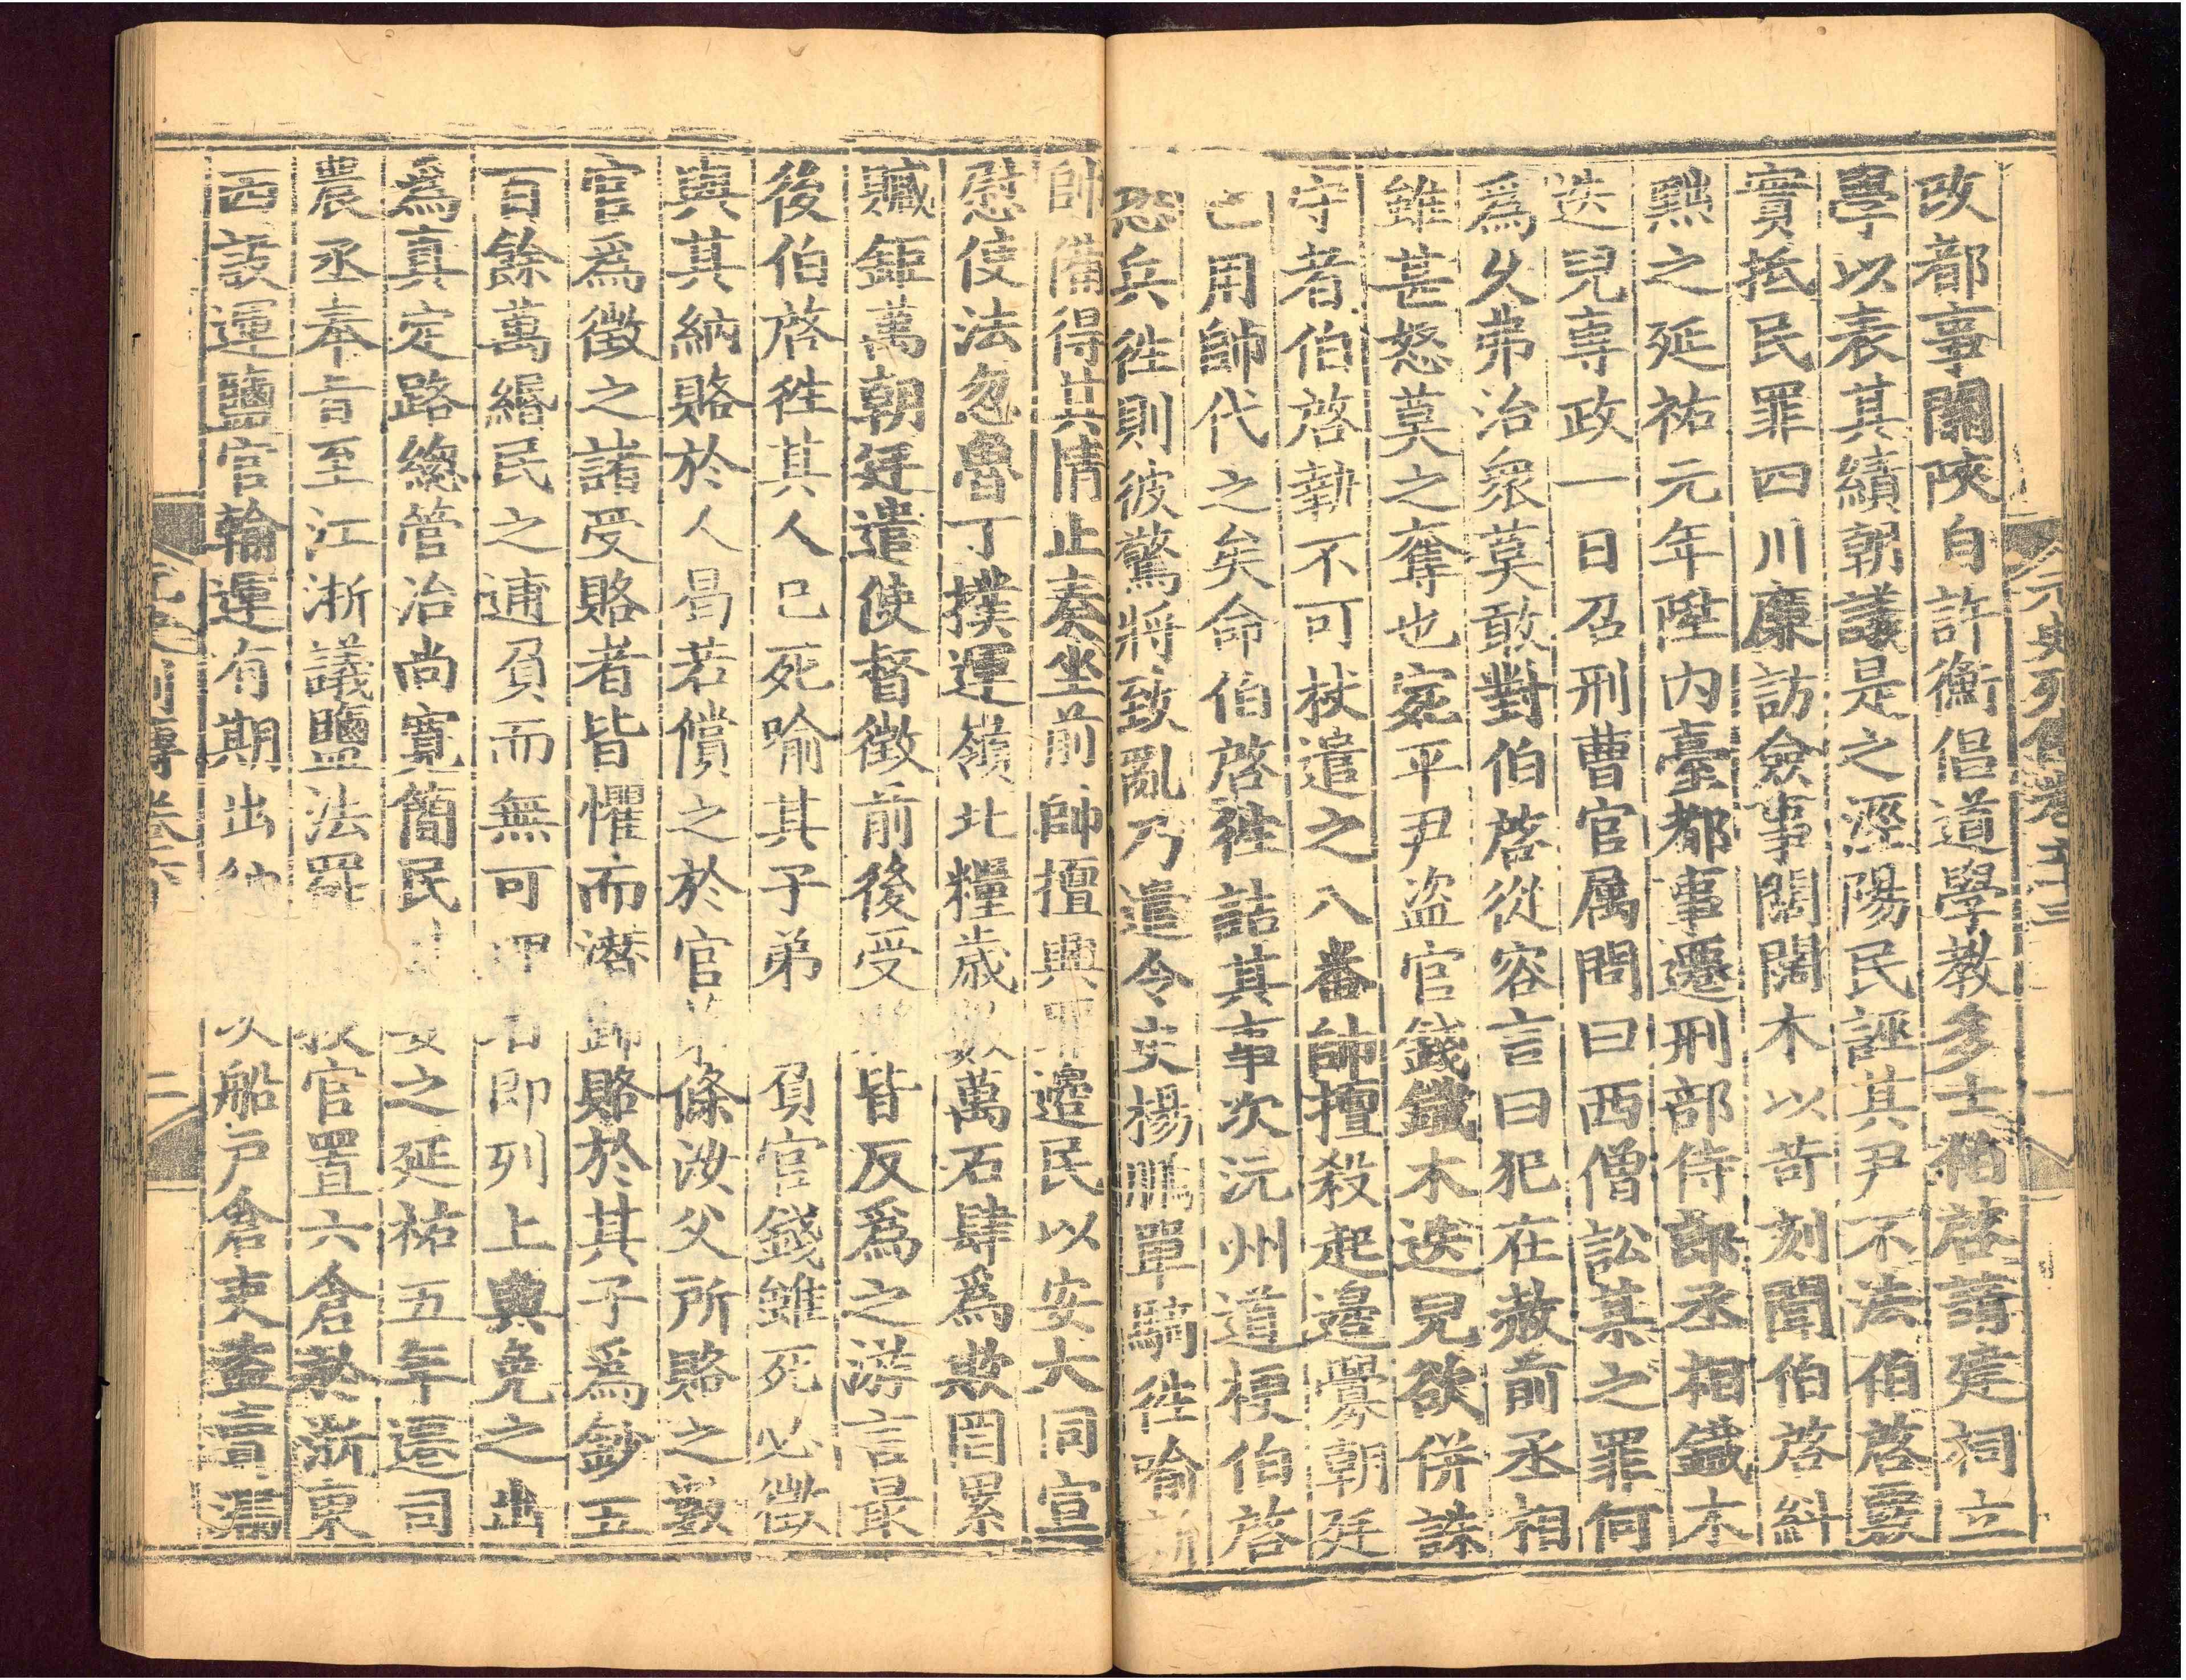 元史列傳卷六十三
一
改都事關陝自許衡倡道學教多士伯啓請建祠立
學以表其績朝議是之涇陽民誣其尹不法伯啓覈
實抵民罪四川廉訪僉事闊闊木以苛刻聞伯啓糾
黜之延祐元年陞內臺都事遷刑部侍郎丞相鐵木
迭兒專政一日召刑曹官属問曰西僧訟某之罪何
爲久弗治衆莫敢對伯啓從容言曰犯在赦前丞相
雖甚怒莫之奪也宛平尹盜官錢鐵木迭兒欲併誅
守者伯啓執不可杖遣之八番帥擅殺起邊釁朝廷
已用帥代之矣命伯啓徃詰其事次沅州道梗伯啓
恐兵徃則彼驚將致亂乃遣令史楊鵬單騎徃喻新
帥備得其情止奏坐前帥擅興罪邊民以安大同宣
慰使法忽魯丁撲運嶺北糧歲數萬石肆爲欺罔累
贓鉅萬朝廷遣使督徴前後受賂皆反爲之游言最
後伯啓徃其人已死喻其子弟負官錢雖死必徴
與其納賂於人曷若償之於官第條汝父所賂之數
官爲徴之諸受賂者皆懼而潛歸賂於其子爲鈔五
百餘萬緡民之逋負而無可理者即列上與免之出
爲真定路總管治尚寬簡民安之延祐五年還司
農丞奉旨至江浙議鹽法罷官置六倉於浙東
西設運鹽官輸運有期出納次船戶倉吏盡盜漏
列傳卷六
二